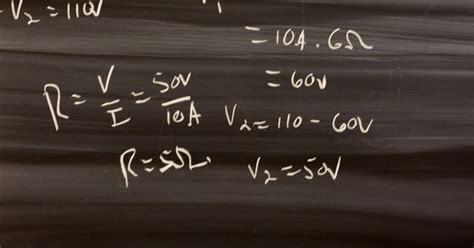 V₂ = 110V
= 10A . 6Ω
= 60V
R = V/I = 50V/10A
V₂ = 110 - 60V
R = 5Ω
V₂ = 50V